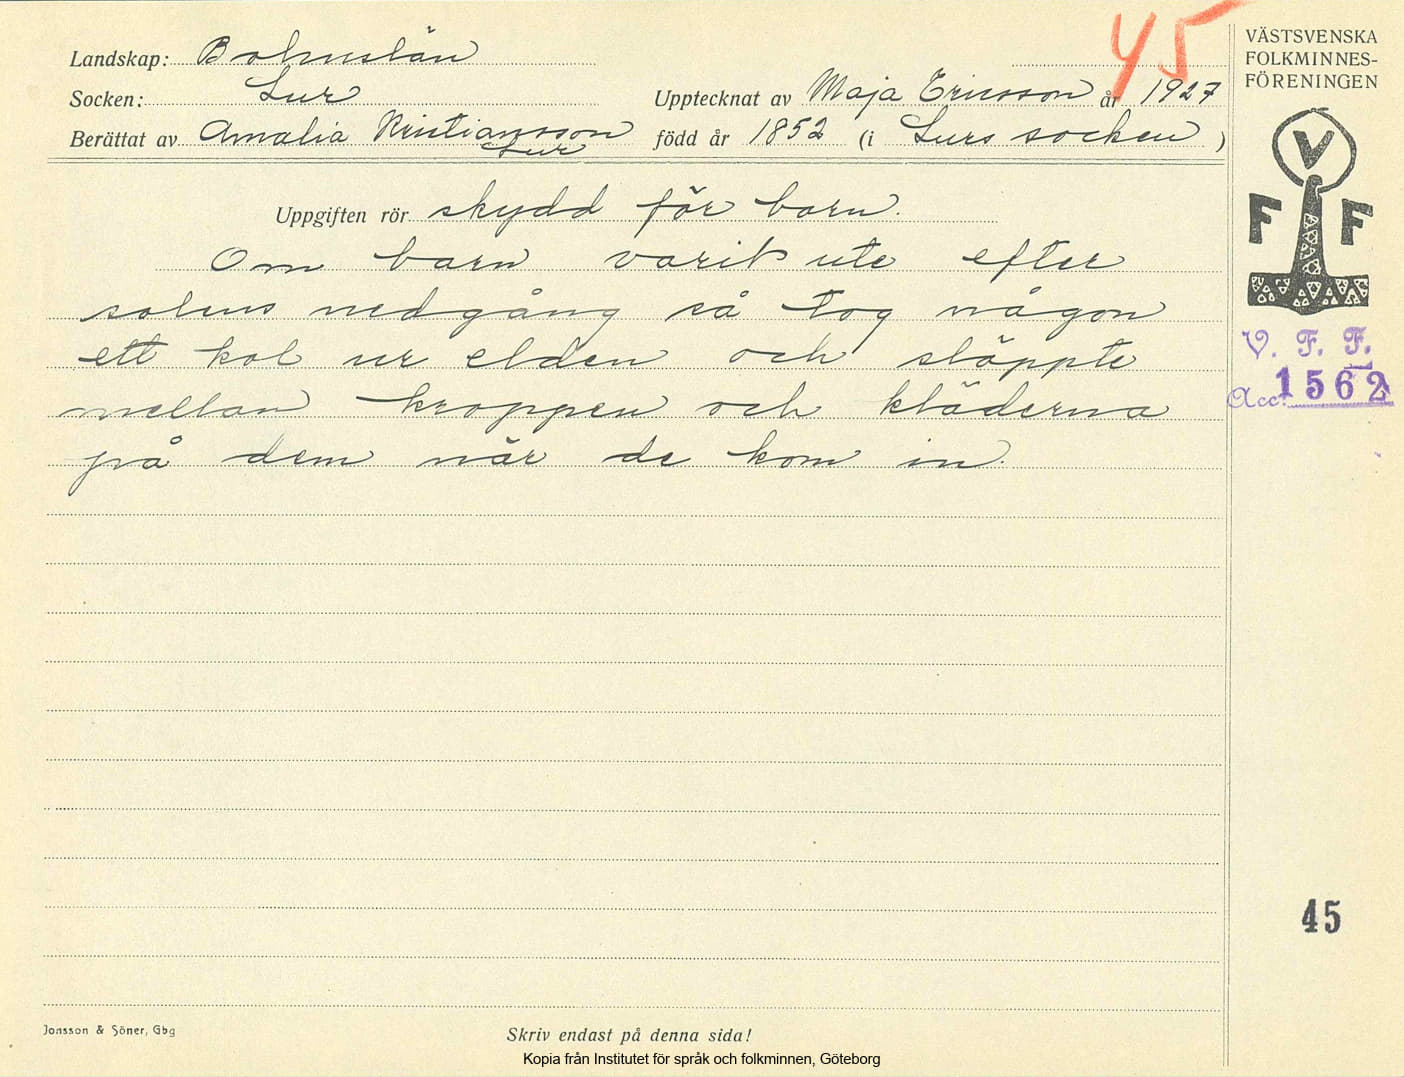 45
Landskap: Bohuslän
Socken: Lur
Upptecknat av Maja Ericsson år 1927
Berättat av Amalia Kristiansson
Lur
född år 1852 (i Lurs socken)
Uppgiften rör skydd för barn.
Om barn varit ute efter
solens nedgång så tog någon
ett kol ur elden och släppte
mellan kroppen och kläderna
på dem när de kom in.
VÄSTSVENSKA
FOLKMINNES-
FÖRENINGEN
V
F F
V. F. F.
Acc. 1562
45
Jonsson & Söner, Gbg
Skriv endast på denna sida!
Kopia från Institutet för språk och folkminnen, Göteborg